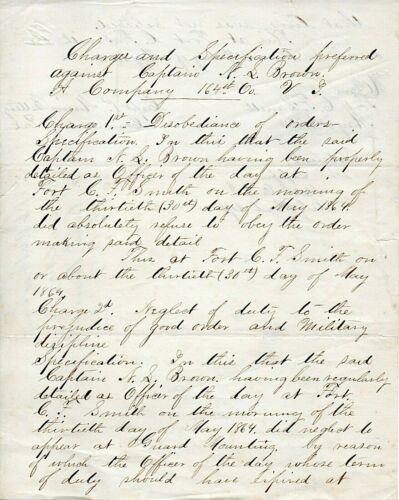 Charges and Specification preferred
against Captain A. L. Brown.
A Company 164th O. V. I.
Charge 1st - Disobediance of orders
Specification. In this that the said
Captain A. L. Brown having been properly
detailed as Officer of the day at
Fort C. F. Smith on the morning of
the thirtieth (30th) day of May 1864.
did absolutely refuse to obey the order
making said detail
This at Fort C. F. Smith on
or about the thirtieth (30th) day of May
1864
Charge 2d. Neglect of duty to the
prejudice of good order and Military
dicipline
Specification. In this that the said
Captain A. L. Brown. having been regularly
detailed as Officer of the day at Fort.
C. F. Smith on the morning of the
thirtieth day of May 1864. did neglect to
appear at Guard Mounting by reason
of which the Officer of the day whose term
of duty should have expired at